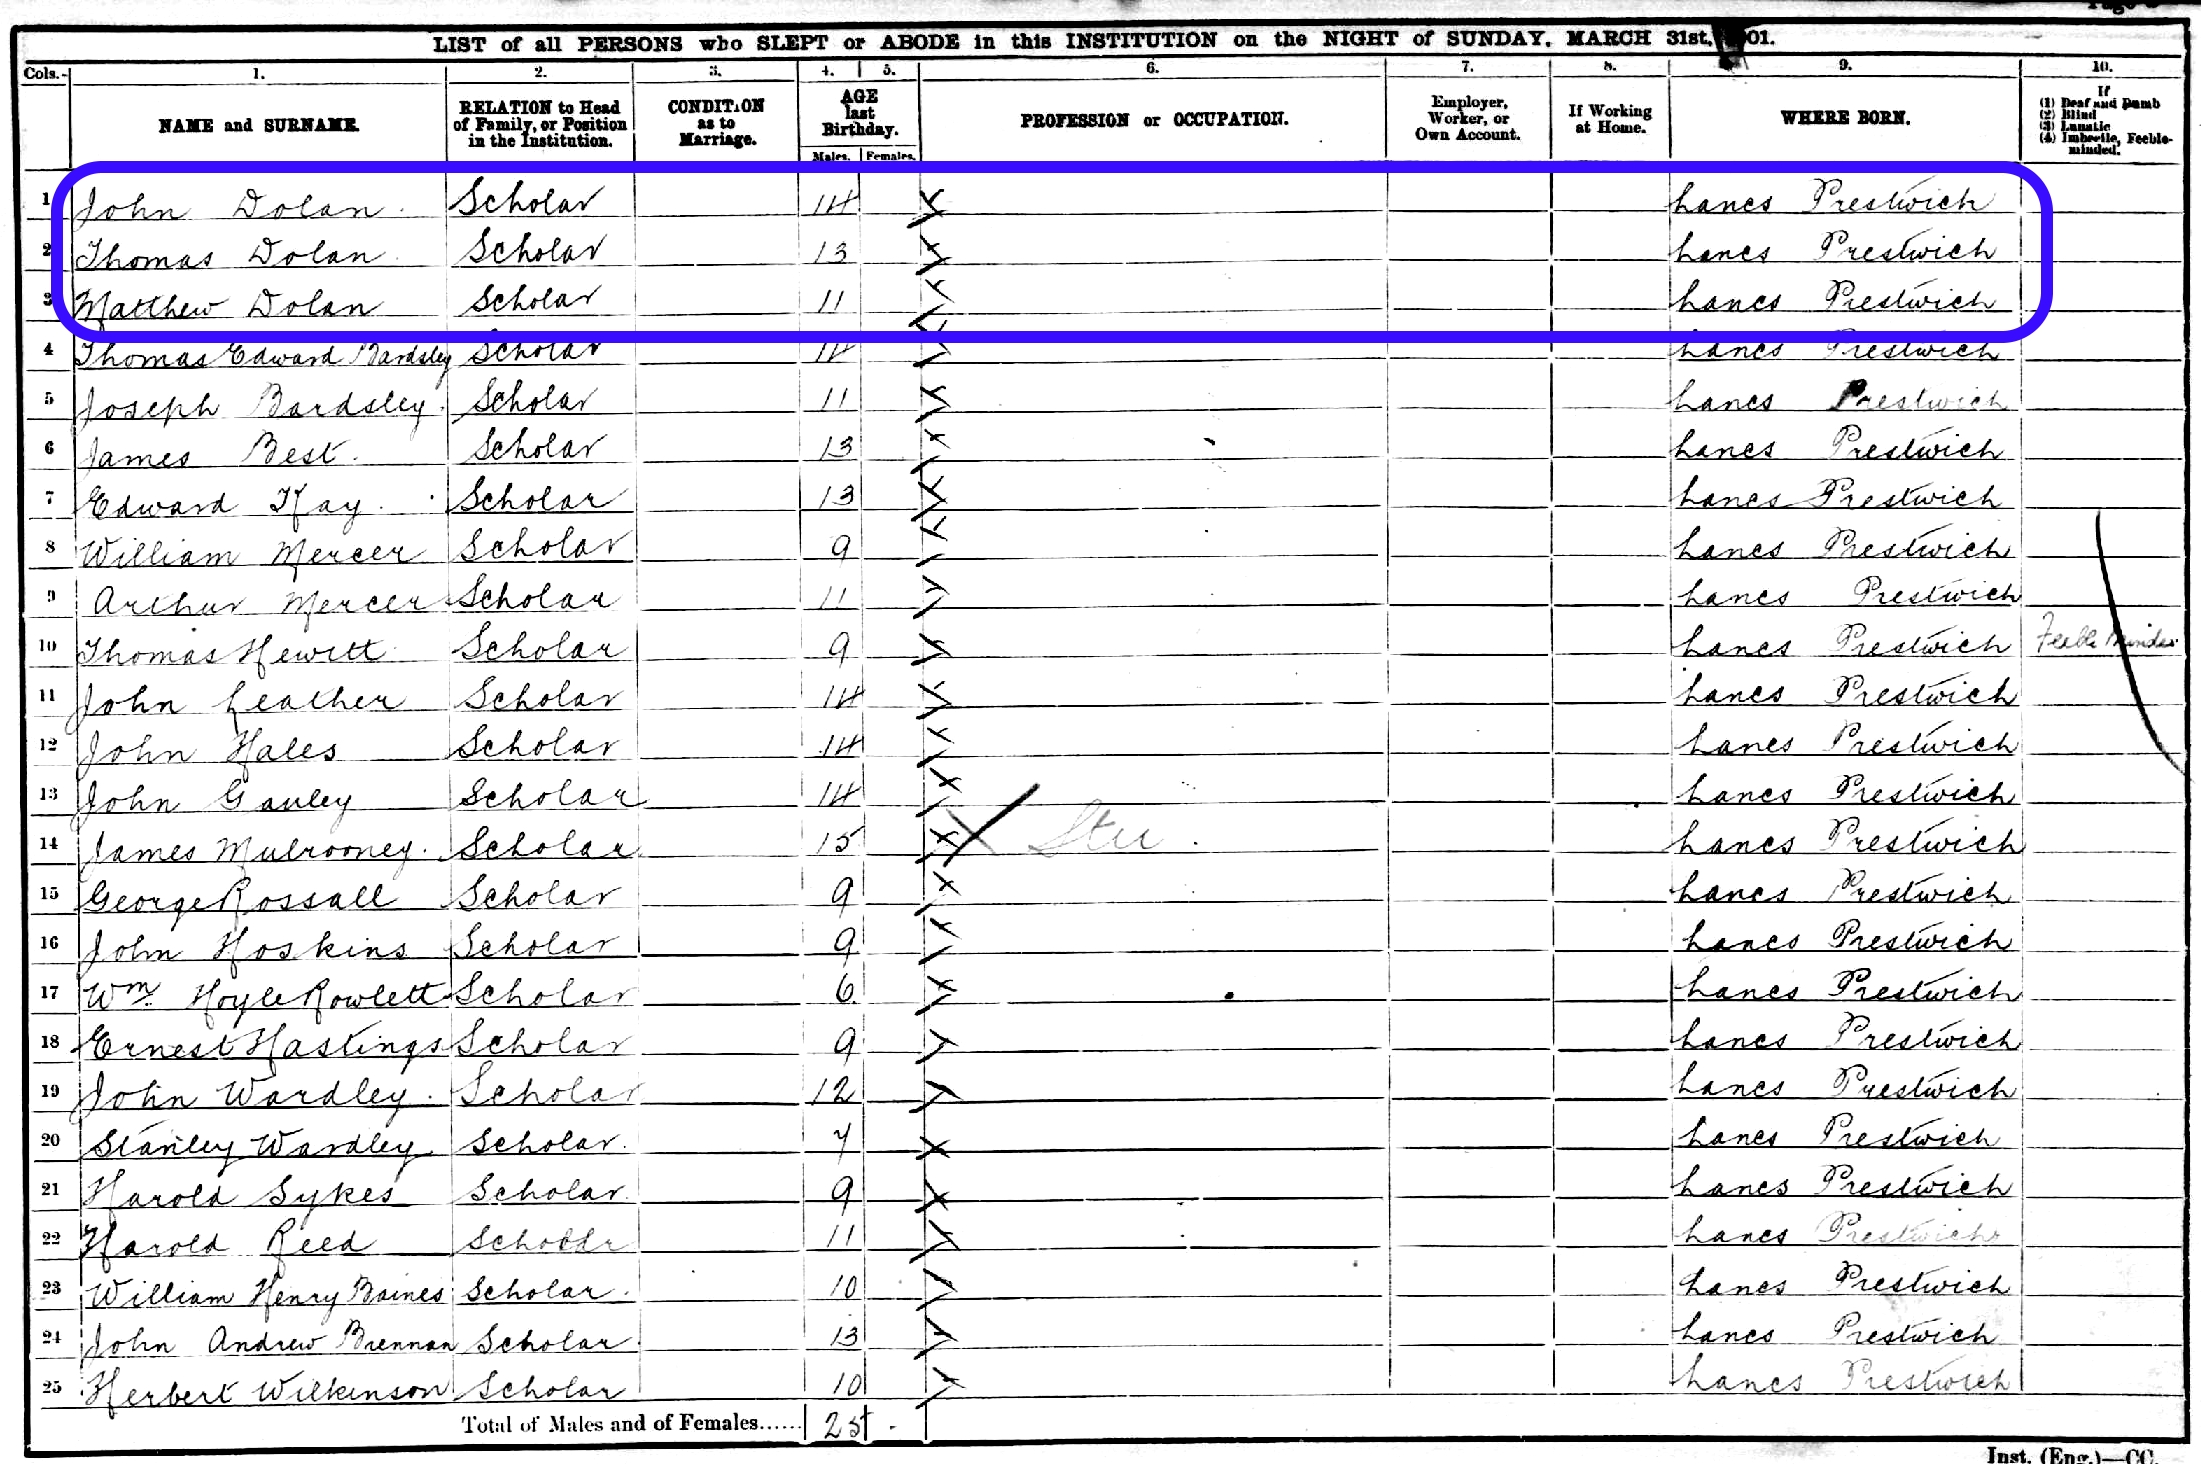 LIST of all PERSONS who SLEPT or ABODE in this INSTITUTION on the NIGHT of SUNDAY, MARCH 31st, 01.
Cols.- 1. 2. 3. 4. 5. 6. 7. 8. 9. 10.
NAME and SURNAME. RELATION to Head of Family, or Position in the Institution. CONDITION as to Marriage. AGE last Birthday. Males. Females. PROFESSION or OCCUPATION. Employer, Worker, or Own Account. If Working at Home. WHERE BORN. If (1) Deaf and Dumb (2) Blind (3) Lunatic (4) Imbecile, Feeble-minded.
1 John Dolan Scholar 14 Lancs Prestwich
2 Thomas Dolan Scholar 13 Lancs Prestwich
3 Matthew Dolan Scholar 11 Lancs Prestwich
4 Thomas Edward Bardsley Scholar 14 Lancs Prestwich
5 Joseph Bardsley Scholar 11 Lancs Prestwich
6 James Best Scholar 13 Lancs Prestwich
7 Edward Kay Scholar 13 Lancs Prestwich
8 William Mercer Scholar 9 Lancs Prestwich
9 Arthur Mercer Scholar 11 Lancs Prestwich
10 Thomas Hewitt Scholar 9 Lancs Prestwich Feeble Minded
11 John Leather Scholar 14 Lancs Prestwich
12 John Hales Scholar 14 Lancs Prestwich
13 John Gauley Scholar 14 Lancs Prestwich
14 James Mulrooney Scholar 15 Lancs Prestwich
15 George Rossall Scholar 9 Lancs Prestwich
16 John Hoskins Scholar 9 Lancs Prestwich
17 Wm. Hoyle Rowlett Scholar 6 Lancs Prestwich
18 Ernest Hastings Scholar 9 Lancs Prestwich
19 John Wardley Scholar 12 Lancs Prestwich
20 Stanley Wardley Scholar 7 Lancs Prestwich
21 Harold Sykes Scholar 9 Lancs Prestwich
22 Harold Reed Scholar 11 Lancs Prestwich
23 William Henry Baines Scholar 10 Lancs Prestwich
24 John Andrew Brennan Scholar 13 Lancs Prestwich
25 Herbert Wilkinson Scholar 10 Lancs Prestwich
Total of Males and of Females...... 25 -
Inst. (Eng.)—CC.